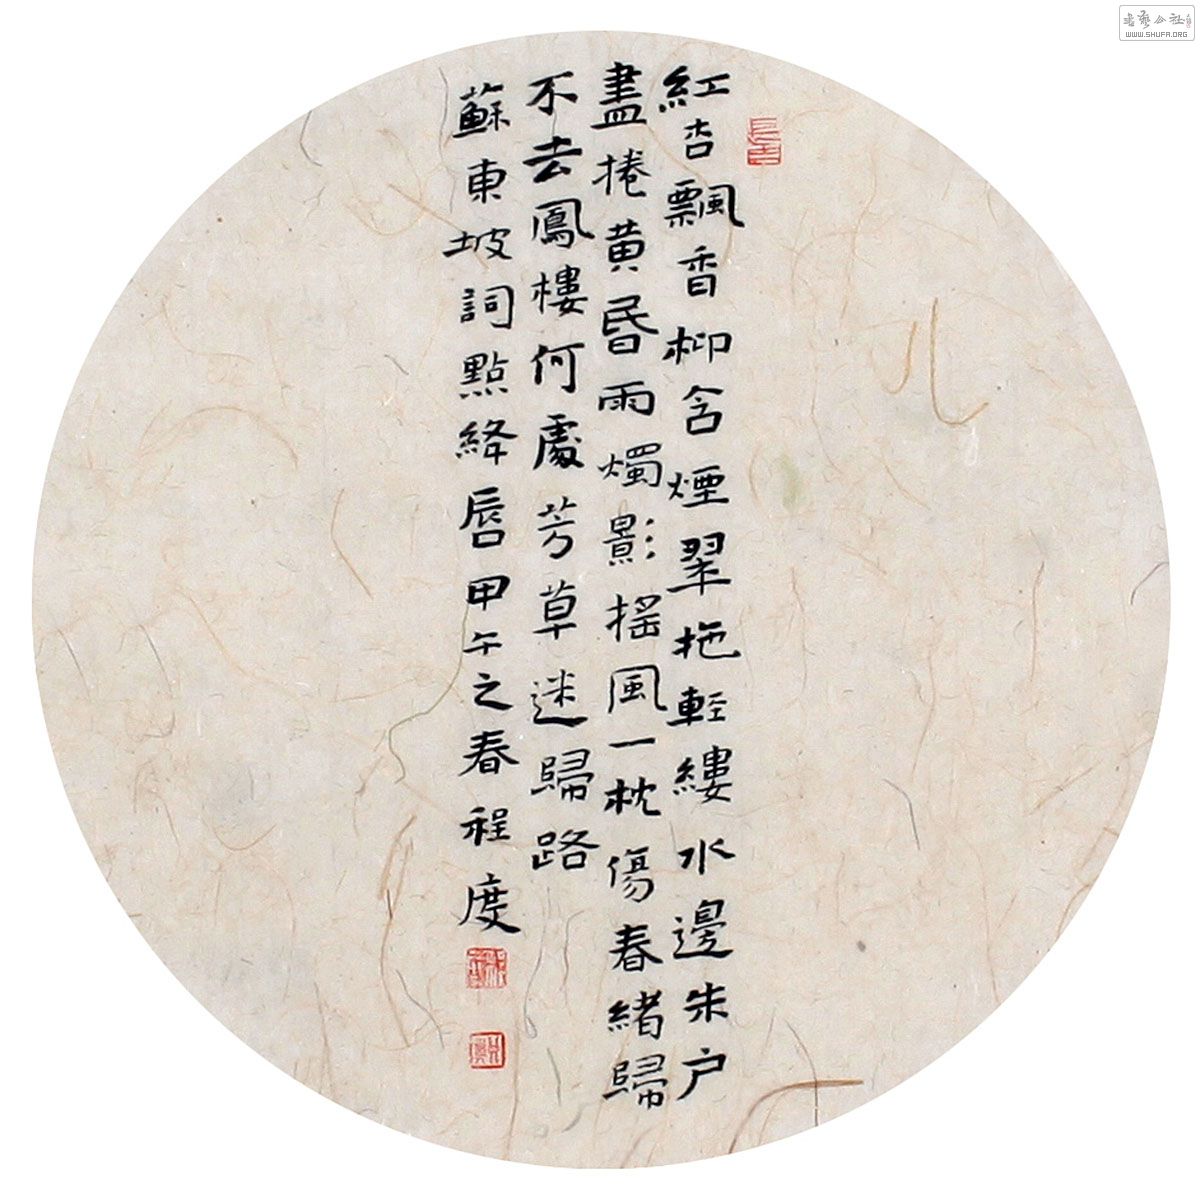 紅杏飄香柳含煙翠拖輕縷水邊朱户
盡捲黄昏雨燭影摇風一枕傷春緒歸
不去鳳樓何處芳草迷歸路
蘇東坡詞點絳唇甲午之春程度
WWW.SHUFA.ORG